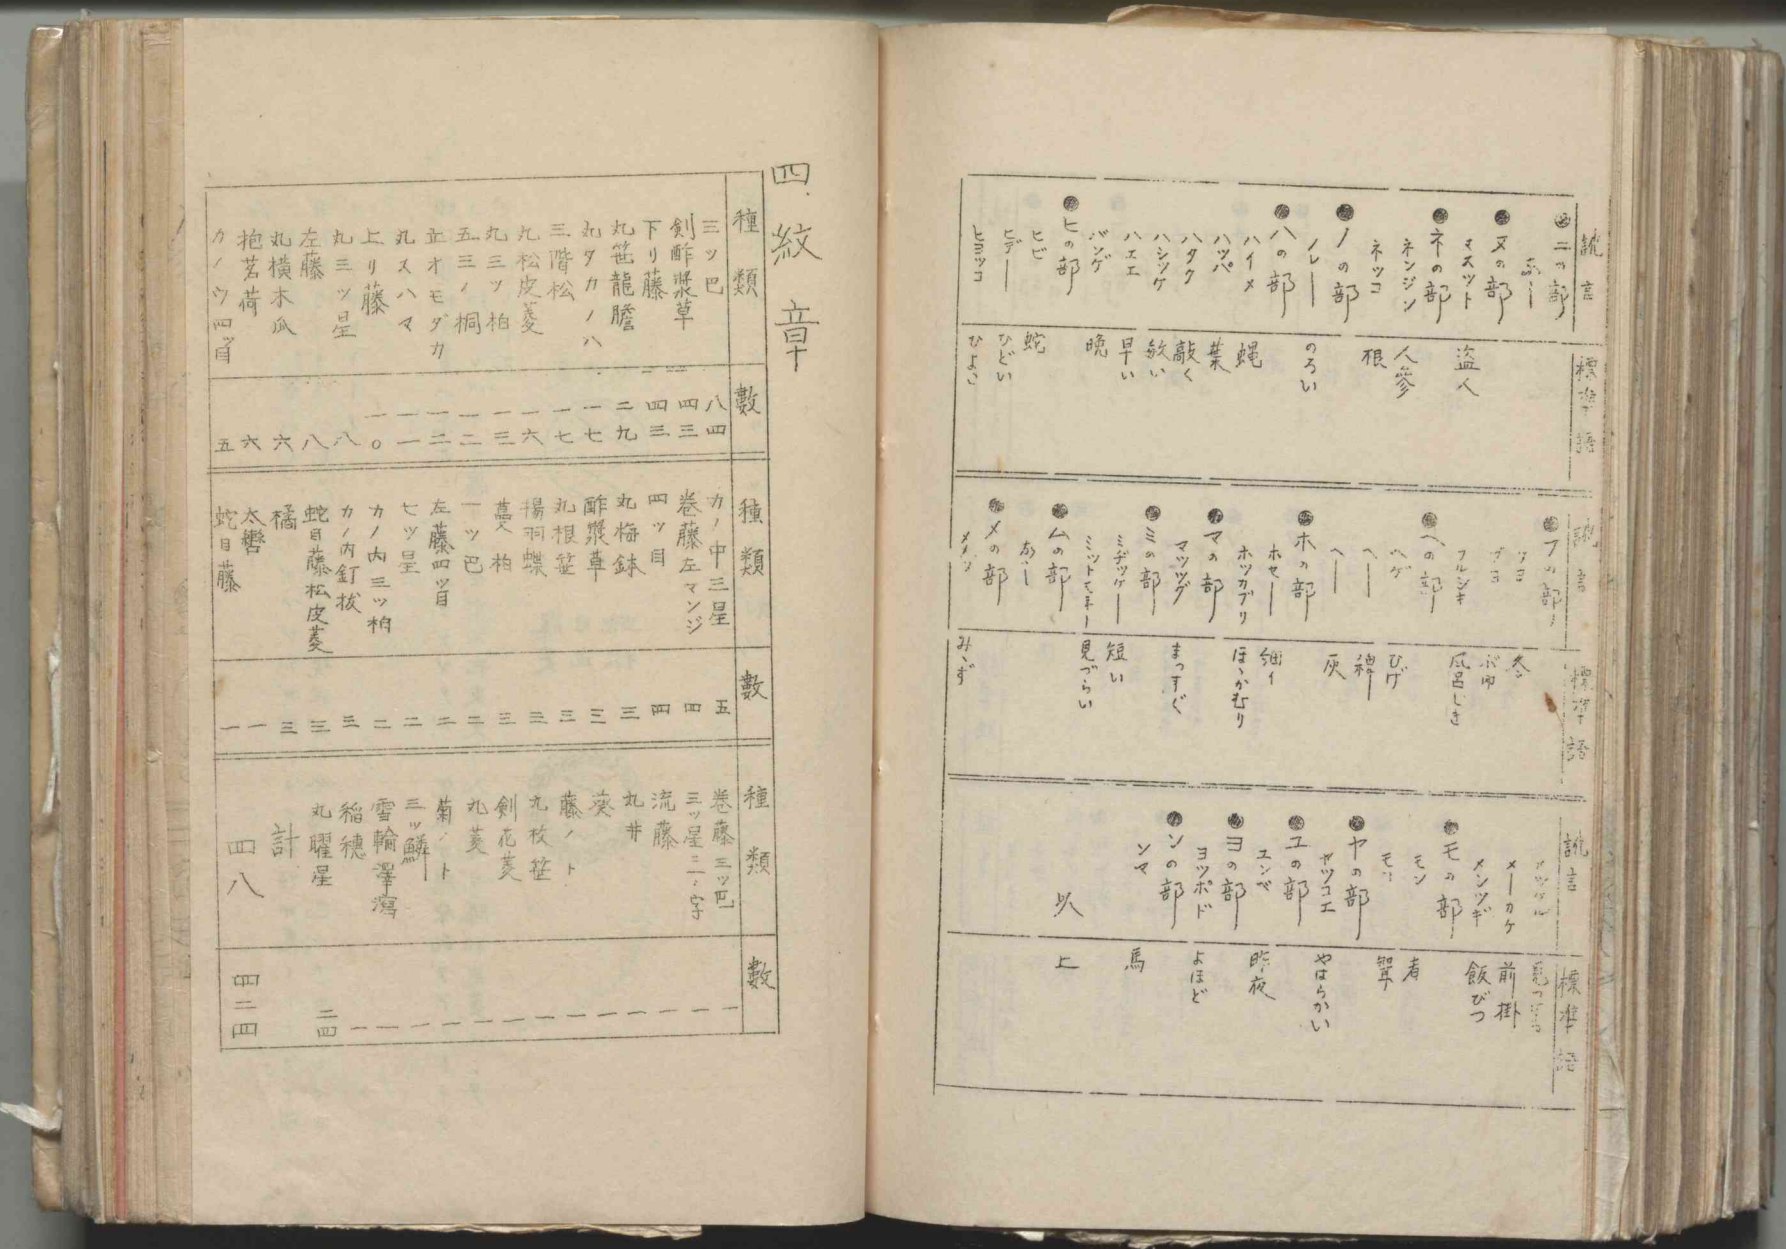 訛言
標準語
●ニの部
なし
●ヌの部
ヌスット 盗人
●ネの部
ネンジン 人參
ネッコ 根
●ノの部
ノレー のろい
●ハの部
ハイメ 蝿
ハッパ 葉
ハタク 敲く
ハシッケ 敏い
ハエエ 早い
バンゲ 晩
●ヒの部
ヒビ 蛇
ヒデー ひどい
ヒヨッコ ひよこ
訛言
標準語
●フの部
フルシキ 風呂しき
●ヘの部
ヘゲ ひげ
ヘー
ヘー 灰
●ホの部
ホセー 細イ
ホッカブリ ほゝかむり
●マの部
マッツグ まっすぐ
●ミの部
ミヂッケー 短い
ミットモネー 見づらい
●ムの部
なし
●メの部
メメヅ みゝず
訛言
標準語
メーカケ 前掛
メンツギ 飯びつ
●モの部
モン 者
●ヤの部
ヤッコエ やはらかい
●ユの部
ユンベ 昨夜
●ヨの部
ヨッポド よほど
●ンの部
ンマ 馬
以上
四、紋章
種類 數
三ッ巴 八四
剣酢漿草 四三
下り藤 四三
丸笹龍膽 二九
丸タカノハ 一七
三階松 一七
丸松皮菱 一六
丸三ッ柏 一三
五三ノ桐 一二
立オモダカ 一二
丸スハマ 一一
上リ藤 一〇
丸三ッ星 八
左藤 八
丸横木瓜 六
抱茗荷 六
カノウ四ッ目 五
種類 數
カノ中三星 五
巻藤左マンジ 四
四ッ目 四
丸梅鉢 三
酢漿草 三
丸根笹 三
揚羽蝶 三
蔓柏 三
一ッ巴 二
左藤四ッ目 二
七ッ星 二
カノ内三ッ柏 二
カノ内釘拔 三
蛇目藤松皮菱 三
橘 三
太轡 一
蛇目藤 一
種類 數
巻藤三ッ巴 一
三ッ星ニ一ノ字 一
流藤 一
丸井 一
葵 一
藤ノト 一
九枚笹 一
剣花菱 一
丸菱 一
菊ノト 一
三ッ鱗 一
雪輪澤瀉 一
稲穂 一
丸曜星 二四
計
四八 四二四